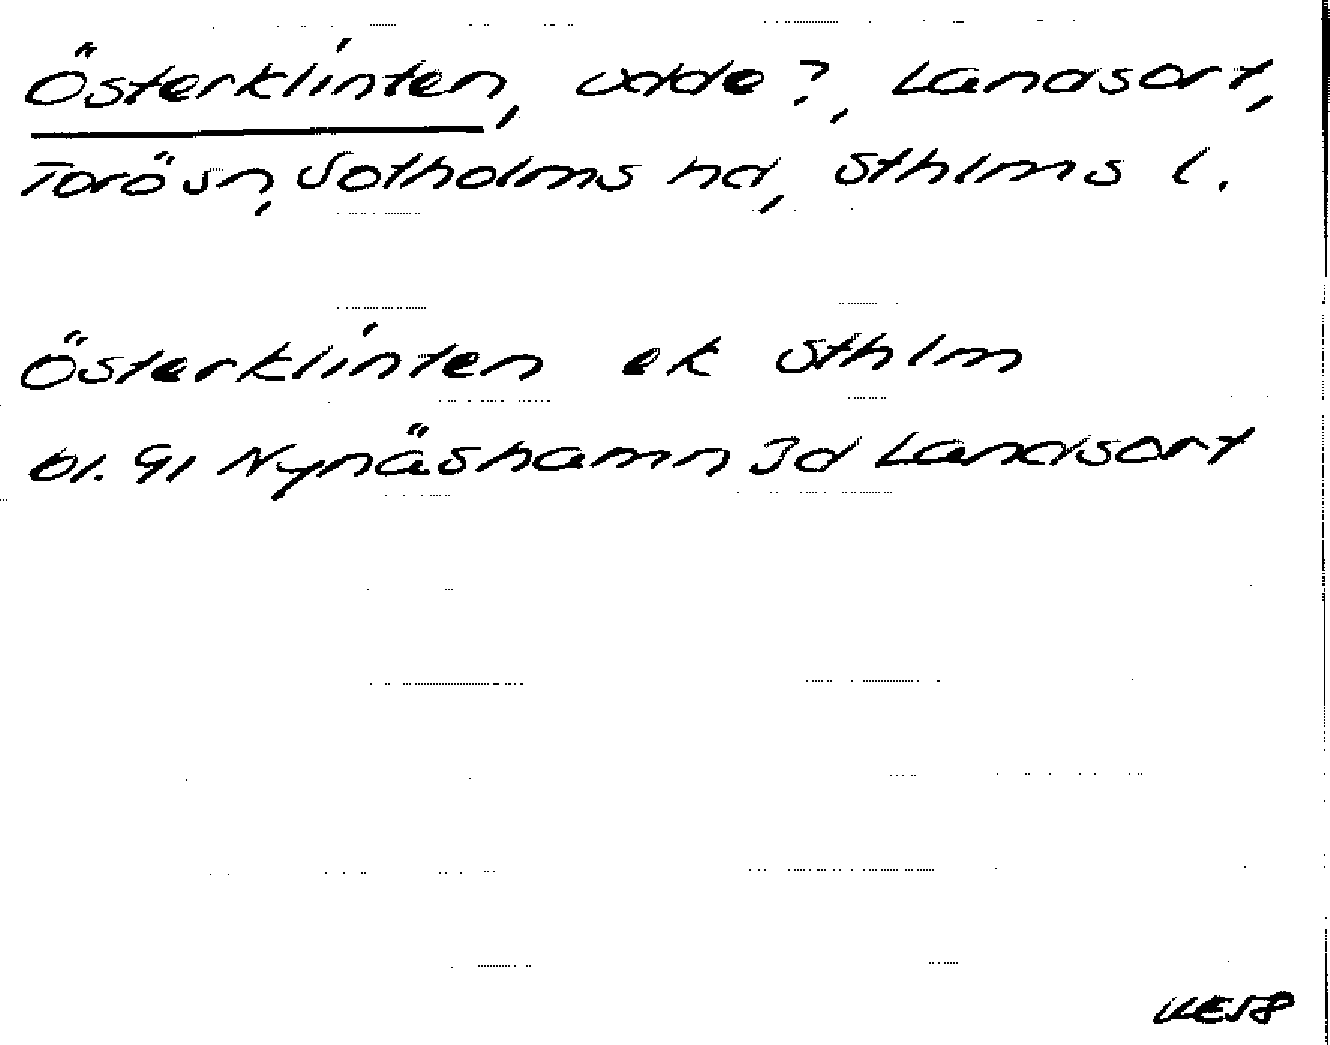 Österklinten, udde?, Landsort,
Torö sn, Sotholms hd, Sthlms l.
Österklinten ek Sthlm
61.91 Nynäshamn Id Landsort